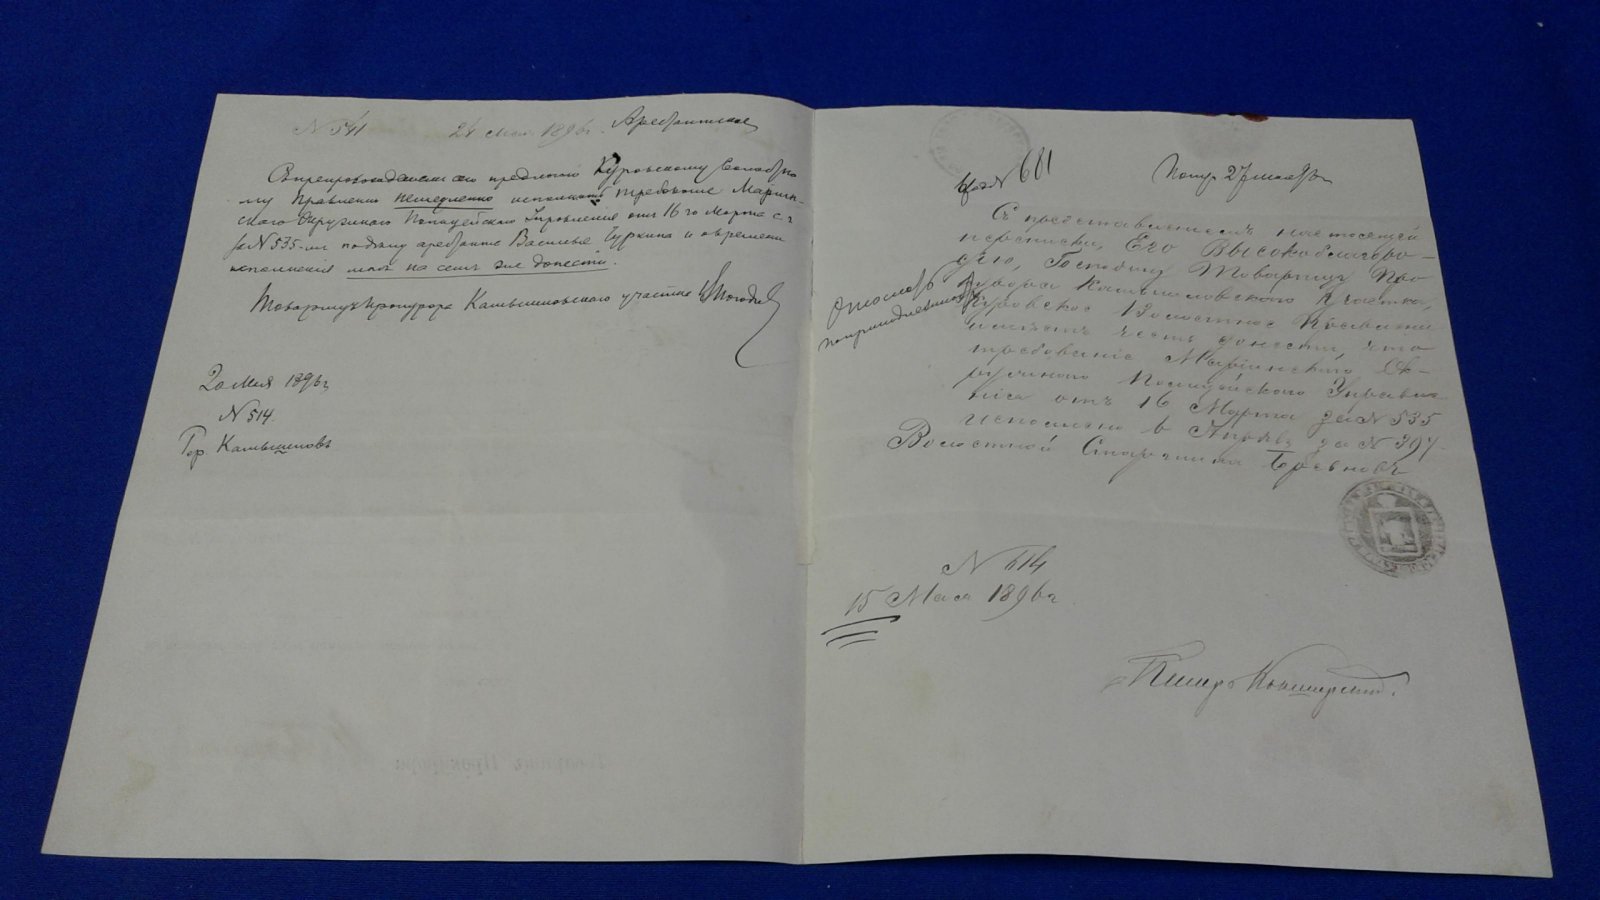 N 541 24 Мая 1896 г. Арестантское
препровождается предлагаю Куровскому Волостно
му Правлению немедленно исполнить требованіе Маріин-
ского Окружного Полицейского Управления отъ 16 го Марта с. г.
за N 535 арестанта Василья Чуркина и о времени
исполненія мнѣ на семъ же донести.
Товарищъ прокурора Камышловского участка
20 Мая 1896 г.
N 514.
Гор. Камышловъ
N 681
Получ. 27 мая 96 г.
Съ представленіемъ настоящей
переписки, Его Высокоблагоро-
дію, Господину Товарищу Про
курора Камышловского Участка,
Куровское Волостное Правленіе
имѣетъ честь донести, что
требованіе Маріинского Ок-
ружного Полицейского Управле-
нія отъ 16 Марта за N 535
исполнено в Апрѣлѣ за N 397.
Волостной Старшина
N 614
15 Мая 1896 г.
Писарь